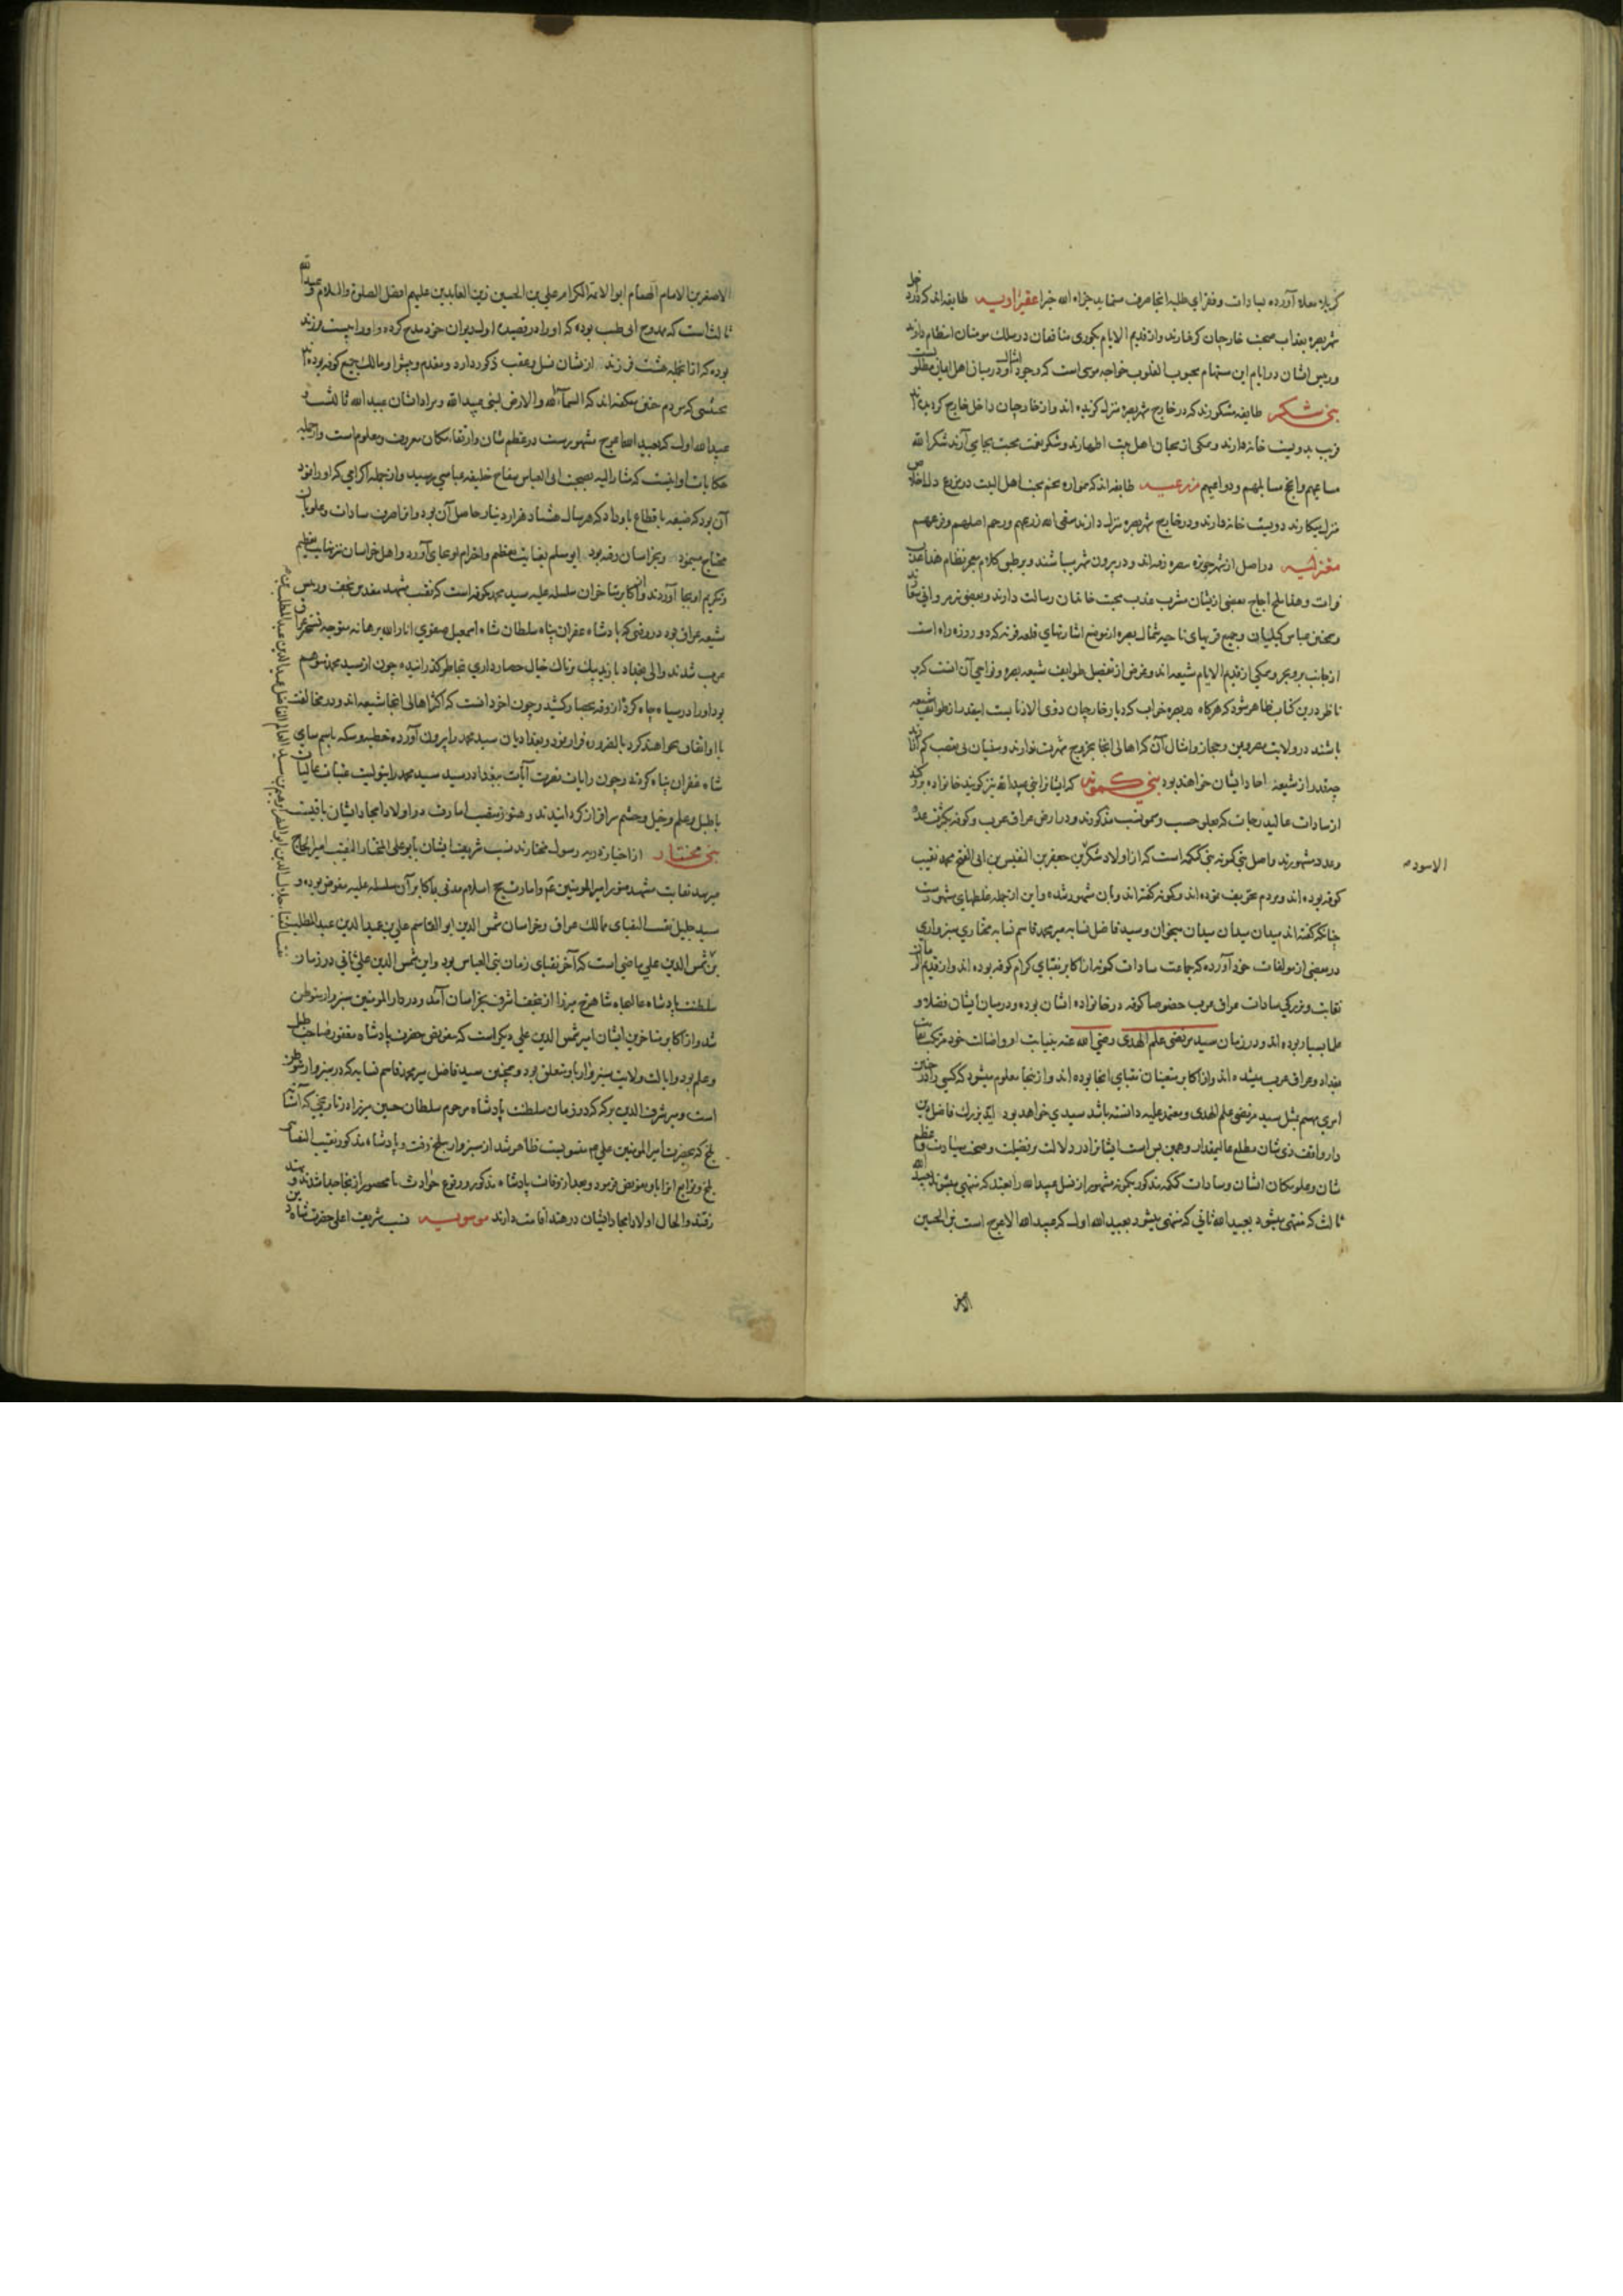 کربلاء معلا آورده بسادات و فقرای طلبه انجا صرف مینماید جزاه الله خیرا عقیراویه طایفه اند که در داخل
شهر بصره بعذاب صحبت خارجیان گرفتارند و از قدیم الایام بکوری منافقان در سلک مومنان انتظام دارند
و رییس ایشان در ایام این مستهام محبوب القلوب خواجه موسی است که وجود امثال او در میان اهل ایمان مطلوبست
بنی شکر طایفه مشکورند که در خارج شهر بصره منزل گزیده اند و از خارجیان داخل خارج کرده بیند
قریب بدویست خانه دارند و همگی از محبان اهل بیت اطهارند و شکر نعمت محبت بجای آرند شکر الله
مساعیهم و انجح مسایلهم و دواعیهم مزرعیه طایفه اند که همواره تخم محبت اهل البیت در مزرع دل اخلاص
منزل میکارند دویست خانه دارند و در خارج شهر بصره منزل دارند سقی الله زرعهم و رحم اصلهم و فرعهم
معتزلیه در اصل از شهر حویزه ببصره رفته اند و در بیرون شهر میباشند و بر طبق کلام معجز نظام هذا عذب
فرات و هذا ملح اجاج بعضی ازیشان مشرب عذب محبت خاندان رسالت دارند و بعضی
و همچنین عباس کیلیان و جمیع قریهای ناحیه شمال بصره از موضع اشارتهای قلعه قرنه که دو روزه راه است
از جانب بر و بحر همگی از قدیم الایام شیعه اند و غرض از تفصیل طوایف شیعه بصره و نواحی آن آنست که بر
ناظر درین کتاب ظاهر شود که هرگاه در بصره خراب که دیار خارجیان ذوی الاذنابست اینقدر از طوایف شیعه
باشند در ولایت بحرین و حجاز و امثال آن که اهالی انجا بخروج شهرت ندارند و سنیان بی تعصب کم آزارند
چقدر از شیعه احاد ایشان خواهند بود بنی کمونه که ایشانرا بنی عبدالله نیز گویند خانواده بزرگند
از سادات عالیدرجات که بعلو حسب و سمو نسب مذکورند و در ارض عراق عرب و کوفه بکثرت عدد
و عدد مشهورند و اصل بنی کمونه بنی کمکمه است که از اولاد شکر بن جعفر بن النفیس بن ابی الفتح محمد نقیب
کوفه بوده اند و مردم تحریف نموده اند و کمونه گفته اند و بآن مشهور شده و این از جمله غلطهای مشهورست
چنانکه گفته اند میدان میدان میدان میخوان و سید فاضل نسابه میر محمد قاسم نسابه مختاری سبزواری
در بعضی از مولفات خود آورده که جماعت سادات کمونه از اکابر نقبای کرام کوفه بوده اند و از قدیم الزمان
نقابت و بزرگی سادات عراق عرب خصوصا کوفه در خانواده ایشان بوده و در میان ایشان فضلا و
علما بسیار بوده اند و در زمان سید مرتضی علم الهدی رضی الله عنه بنیابت او و اضالت خود مرتکب نقابت
بغداد و عراق عرب میشده اند و از اکابر متعینان نقبای انجا بوده اند و از ینجا معلوم میشود که کسی را در چنین
امری مهم مثل سید مرتضی علم الهدی و معتمد علیه دانسته باشد سیدی خواهد بود بزرک فاضل دین
دار واقف ذی شان مطلع عالیمقدار و همین بس است ایشانرا در دلالت بر فضیلت و صحت سیادت و عظم
شان و علو مکان ایشان و سادات کمکمه مذکور بکمونه مشهور از نسل عبیدالله رابعند که منتهی میشوند بعبیدالله
ثالث که منتهی میشود بعبیدالله ثانی که منتهی میشود بعبیدالله اول که عبیدالله الاعرج است بن الحسین
الاسود
الاصغر
الاصغر بن الامام الهمام ابوالائمة الکرام علی بن الحسین زین العابدین علیهم افضل الصلوة والسلام و عبیدالله
ثالث است که ممدوح ابی طیب بوده که او را در قصیده اول دیوان خود مدح کرده و او را بیست فرزند
بوده که از انجمله هشت فرزند ازیشان نسل و عقب مذکور دارد و مقدم و پیشوا و مالک جمیع کوفه بوده اند
بحیثیتی که مردم حتی میگفته اند که السماء لله والارض لبنی عبیدالله و مراد ایشان عبیدالله ثالثست و
عبیدالله اول که بعبیدالله اعرج مشهورست در عظم شان و ارتفاع مکان معروف و معلوم است و از جمله
حکایات او اینست که مشار الیه بصحبت ابی العباس سفاح خلیفه عباسی رسید و از جمله اکرامی که او را نمود
آن بود که ضیعه باقطاع باو داد که هر سال هشتاد هزار دینار حاصل آن بود و از انصرف سادات و علویان
محتاج مینمود و بخراسان رفته بود ابو مسلم بغایت تعظیم و احترام او بجای آورد و اهل خراسان نیز نهایت تعظیم
و تکریم او بجا آوردند و از اکابر متاخران سلسله علیه سید محمد کمونه است که نقیب مشهد مقدس نجف و رییس
شیعه عراق بود در وقتی که پادشاه غفران پناه سلطان شاه اسمعیل صفوی انار الله برهانه متوجه تسخیر عراق
عرب شدند و والی بغداد باریک بیک پرناک خیال حصارداری بخاطر گذرانیده چون از سید محمد متوهم
بود او را در سیاه چاه کرده آذوقه بحصار کشید و چون آخر دانست که اکثر اهالی انجا شیعه اند و در مخالفت
با او اتفاق خواهند کرد بالضروره فرار نمود و بغدادیان سید محمد را بیرون آورده خطبه و سکه باسم سامی
شاه غفران پناه کردند و چون رایات نصرت آیات ببغداد رسید سید محمد را بتولیت عتبات عالیات
با طبل و علم و خیل و حشم سرافراز گردانیدند و هنوز منصب امارت در اولاد امجاد ایشان باقیست
بنی مختار از اخیار ذریه رسول مختارند نسب شریف ایشان بابو علی المختار النقیب امیر الحاج
میرسد نقابت مشهد منور امیرالمومنین ع و امارت حج اسلام مدتی باکابر آن سلسله علیه مفوض بوده و
سید جلیل نقیب النقبای ممالک عراق و خراسان شمس الدین ابو القاسم علی بن عمید الدین عبدالمطلب
بن شمس الدین علی ماضی است که آخر نقبای زمان بنی العباس بود و این شمس الدین علی ثانی در زمان
سلطنت پادشاه عالیجاه شاهرخ میرزا از نجف اشرف بخراسان آمد و در دار المومنین سبزوار متوطن
شد و از اکابر متاخرین ایشان امیر شمس الدین علی دیگر است که بتفویض حضرت پادشاه مغفور صاحب طبل
و علم بود و ایالت ولایت سبزوار باو متعلق بود و همچنین سید فاضل میر محمد قاسم نسابه که در سبزوار متوطن
است و میر شرف الدین برکه که در زمان سلطنت پادشاه مرحوم سلطان حسین میرزا در تاریخی که آستانه
بلخ که بحضرت امیرالمومنین علی ع منسوبست ظاهر شد از سبزوار ببلخ رفت و پادشاه مذکور نقیب النقبایی
بلخ و توابع انرا باو تفویض فرمود و بعد از وفات پادشاه مذکور و وقوع حوادث نامحصور از انجا جدا شدند و بهند
رفتند و الحال اولاد امجاد ایشان در هند اقامت دارند موسویه نسب شریف اعلی حضرت شاه دین